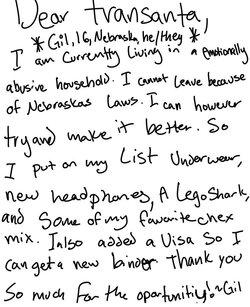 Dear transanta,
*Gil, 16, Nebraska, he/they *
I am currently living in a emotionally
abusive household. I cannot leave because
of Nebraskas laws. I can however
try and make it better. So
I put on my List Underwear,
new headphones, A Lego Shark,
and Some of my favorite chex
mix. I also added a Visa So I
can get a new binder. Thank you
So much For the oportunitiy! ~Gil